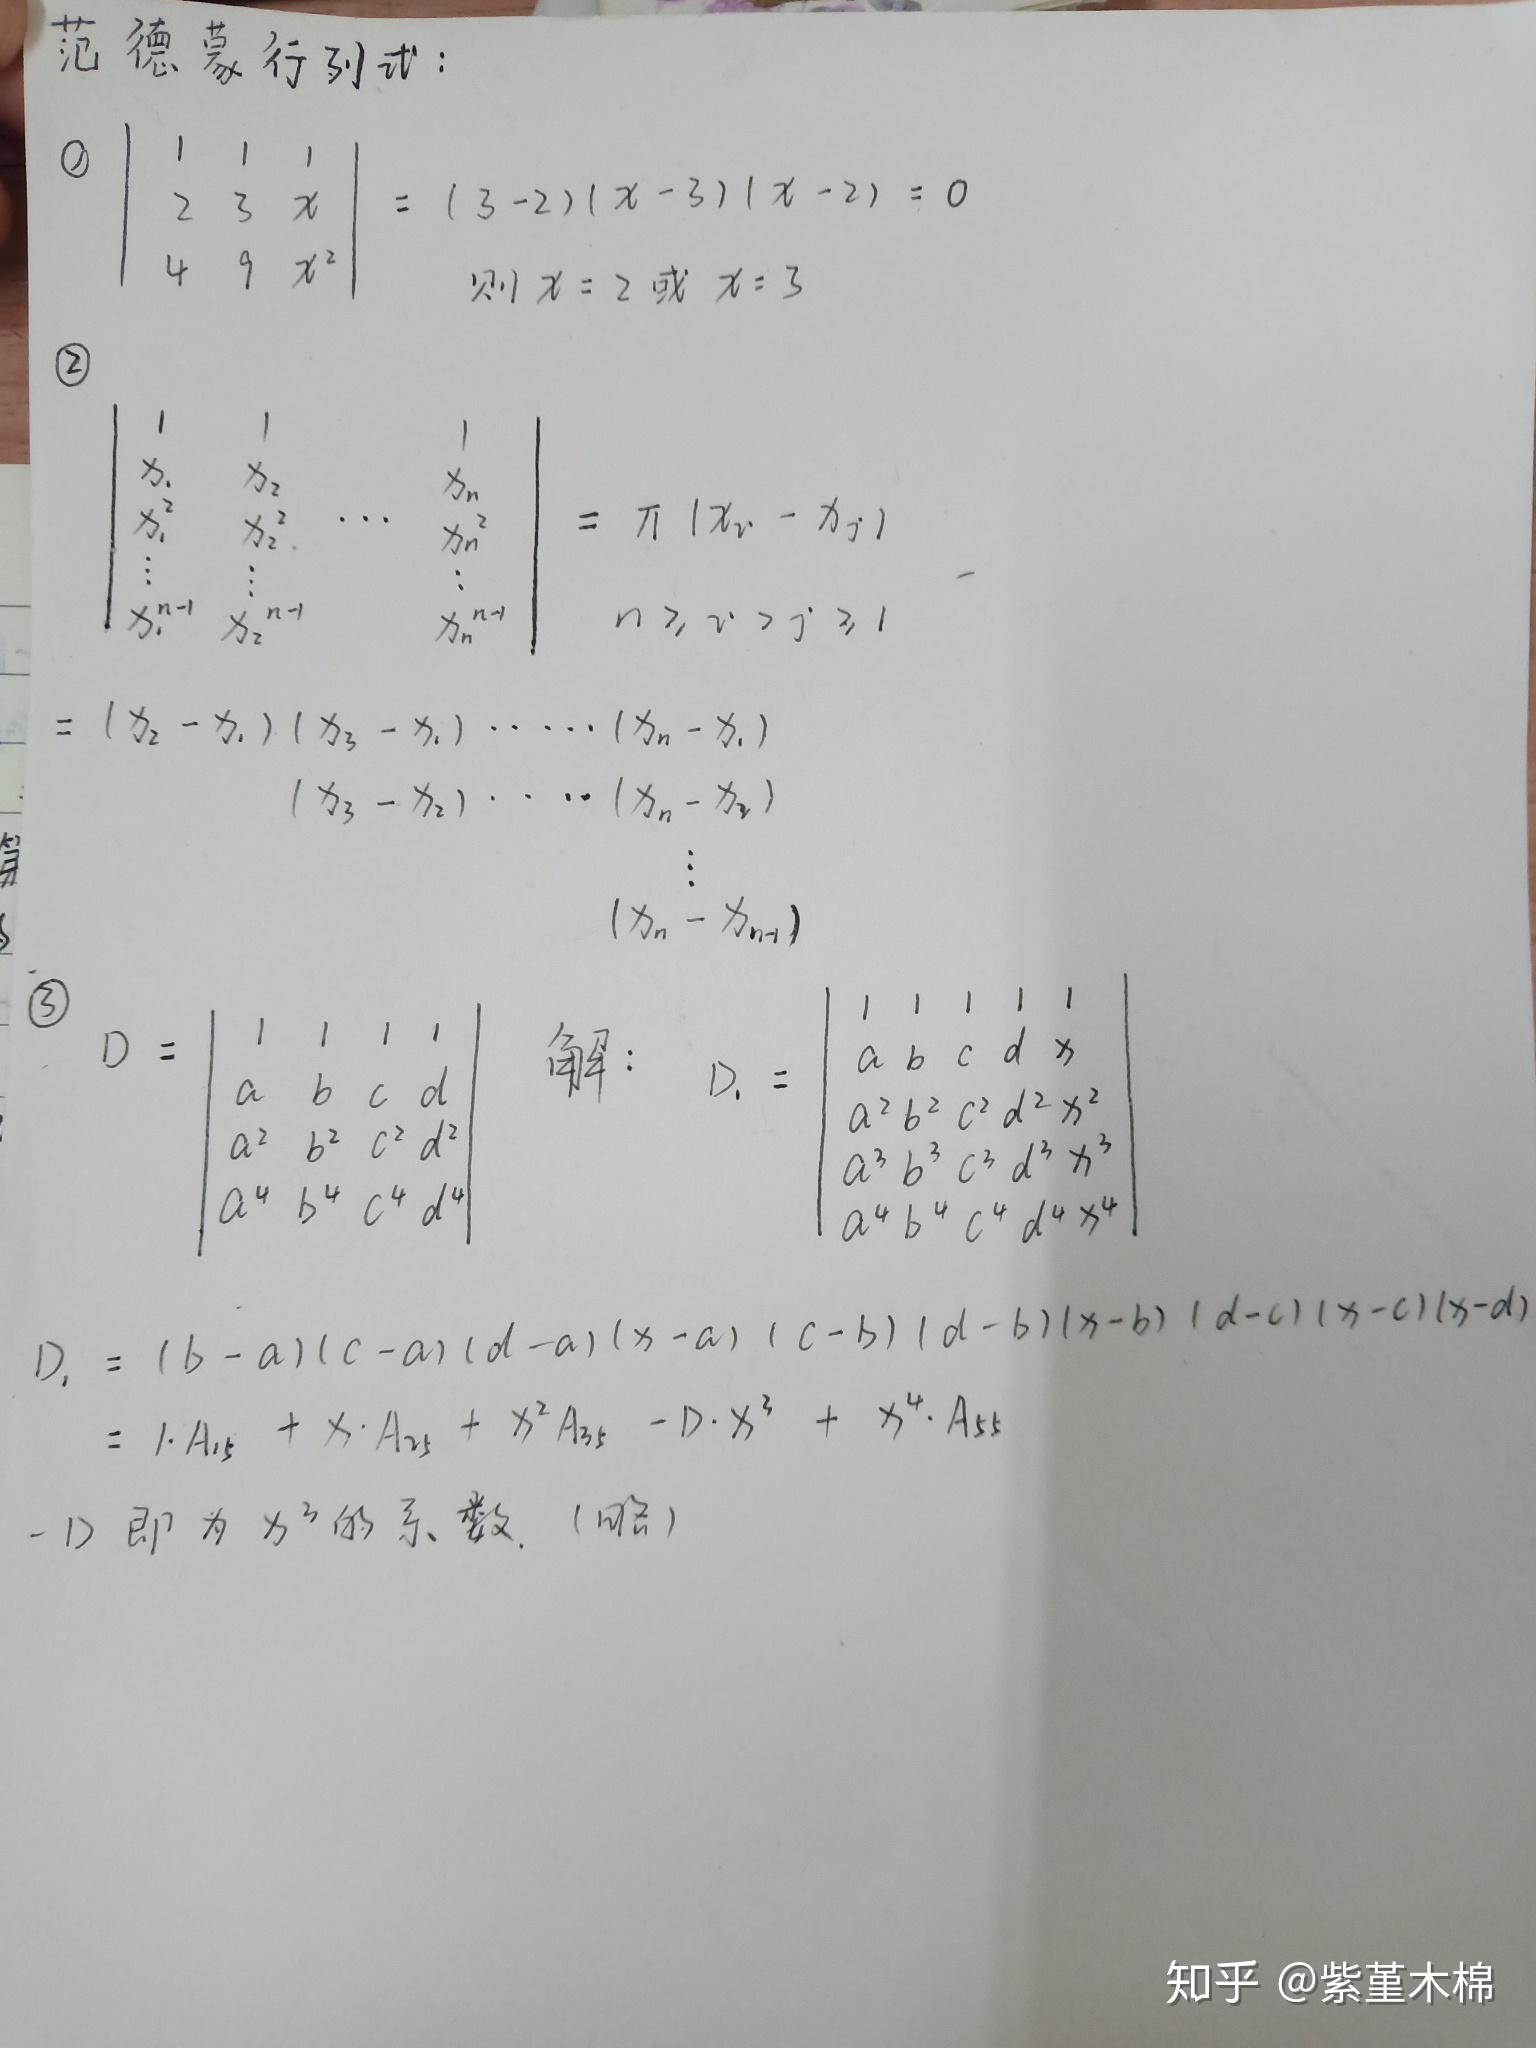 范德蒙行列式:
① | 1 1 1 |
| 2 3 x | = (3-2)(x-3)(x-2) = 0
| 4 9 x² | 则 x=2 或 x=3
②
| 1 1 1 |
| x₁ x₂ xₙ |
| x₁² x₂² ··· xₙ² | = π (xᵢ - xⱼ)
| ⋮ ⋮ ⋮ |
| x₁ⁿ⁻¹ x₂ⁿ⁻¹ xₙⁿ⁻¹ | n ≥ i > j ≥ 1
= (x₂ - x₁)(x₃ - x₁) ······ (xₙ - x₁)
(x₃ - x₂) ····· (xₙ - x₂)
⋮
(xₙ - xₙ₋₁)
③
D = | 1 1 1 1 |
| a b c d |
| a² b² c² d² |
| a⁴ b⁴ c⁴ d⁴ |
解: D₁ = | 1 1 1 1 1 |
| a b c d x |
| a² b² c² d² x² |
| a³ b³ c³ d³ x³ |
| a⁴ b⁴ c⁴ d⁴ x⁴ |
D₁ = (b-a)(c-a)(d-a)(x-a)(c-b)(d-b)(x-b)(d-c)(x-c)(x-d)
= 1·A₁₅ + x·A₂₅ + x²A₃₅ - D·x³ + x⁴·A₅₅
-D 即为 x³ 的系数. (略)
知乎 @紫堇木棉